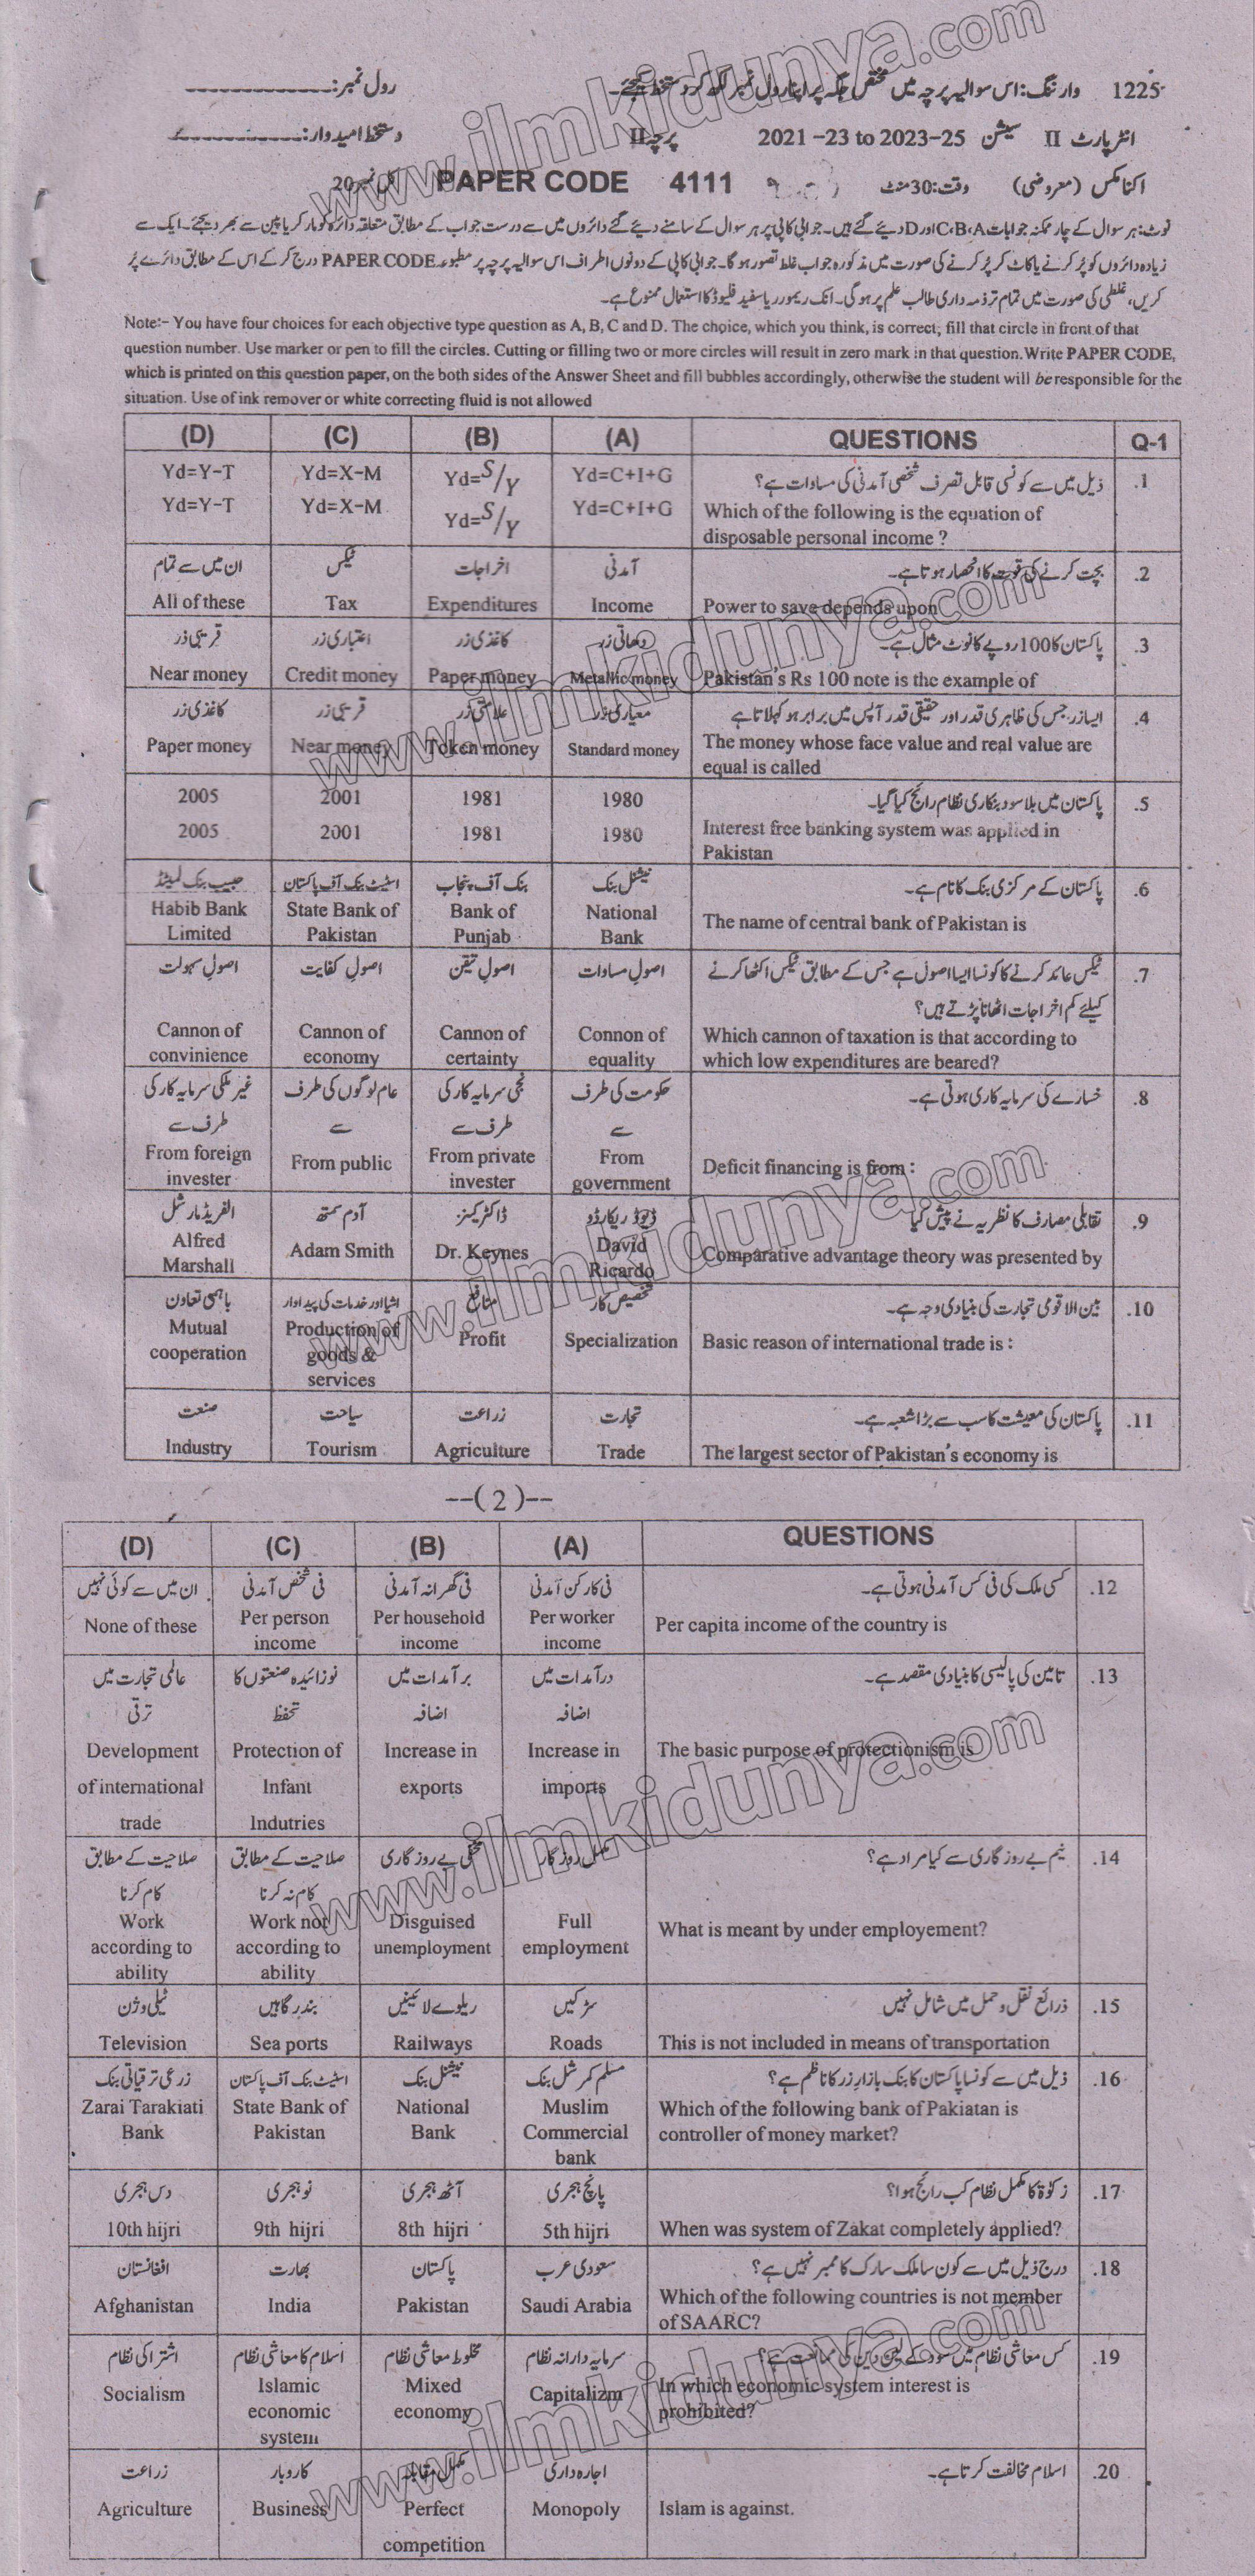 1225 وارننگ: اس سوالیہ پرچہ میں مختص جگہ پر اپنا رول نمبر لکھ کر دستخط کیجئے۔ رول نمبر:
انٹر پارٹ II سیشن 2021-23 to 2023-25 پرچہ II دستخط امیدوار:
اکنامکس (معروضی) وقت: 30 منٹ PAPER CODE 4111 کل نمبر 20
نوٹ: ہر سوال کے چار ممکنہ جوابات C،B،A اور D دیئے گئے ہیں۔ جوابی کاپی پر ہر سوال کے سامنے دیئے گئے دائروں میں سے درست جواب کے مطابق متعلقہ دائرہ کو مار کر یا پین سے بھر دیجئے۔ ایک سے
زیادہ دائروں کو پُر کرنے یا کاٹ کر پُر کرنے کی صورت میں مذکورہ جواب غلط تصور ہو گا۔ جوابی کاپی کے دونوں اطراف اس سوالیہ پرچہ پر مطبوعہ PAPER CODE درج کر کے اس کے مطابق دائرے پُر
کریں، غلطی کی صورت میں تمام تر ذمہ داری طالب علم پر ہو گی۔ انک ریموور یا سفید فلیوڈ کا استعمال ممنوع ہے۔
Note:- You have four choices for each objective type question as A, B, C and D. The choice, which you think, is correct; fill that circle in front of that
question number. Use marker or pen to fill the circles. Cutting or filling two or more circles will result in zero mark in that question. Write PAPER CODE,
which is printed on this question paper, on the both sides of the Answer Sheet and fill bubbles accordingly, otherwise the student will be responsible for the
situation. Use of ink remover or white correcting fluid is not allowed
(D) (C) (B) (A) QUESTIONS Q-1
Yd=Y-T Yd=X-M Yd=S/Y Yd=C+I+G ذیل میں سے کونسی قابل تصرف شخصی آمدنی کی مساوات ہے؟ .1
Yd=Y-T Yd=X-M Yd=S/Y Yd=C+I+G Which of the following is the equation of
disposable personal income ?
ان میں سے تمام ٹیکس اخراجات آمدنی بچت کرنے کی قوت کا انحصار ہوتا ہے۔ .2
All of these Tax Expenditures Income Power to save depends upon
قریبی زر اعتباری زر کاغذی زر دھاتی زر پاکستان کا 100 روپے کا نوٹ مثال ہے۔ .3
Near money Credit money Paper money Metallic money Pakistan's Rs 100 note is the example of
کاغذی زر قریبی زر علامتی زر معیاری زر ایسا زر جس کی ظاہری قدر اور حقیقی قدر آپس میں برابر ہو کہلاتا ہے .4
Paper money Near money Token money Standard money The money whose face value and real value are
equal is called
2005 2001 1981 1980 پاکستان میں بلا سود بنکاری نظام رائج کیا گیا۔ .5
2005 2001 1981 1980 Interest free banking system was applied in
Pakistan
حبیب بنک لمیٹڈ اسٹیٹ بنک آف پاکستان بنک آف پنجاب نیشنل بنک پاکستان کے مرکزی بنک کا نام ہے۔ .6
Habib Bank State Bank of Bank of National The name of central bank of Pakistan is
Limited Pakistan Punjab Bank
اصولِ سہولت اصولِ کفایت اصولِ تیقن اصولِ مساوات ٹیکس عائد کرنے کا کونسا ایسا اصول ہے جس کے مطابق ٹیکس اکٹھا کرنے .7
کیلئے کم اخراجات اٹھانا پڑتے ہیں؟
Cannon of Cannon of Cannon of Connon of Which cannon of taxation is that according to
convinience economy certainty equality which low expenditures are beared?
غیر ملکی سرمایہ کار کی عام لوگوں کی طرف نجی سرمایہ کار کی حکومت کی طرف خسارے کی سرمایہ کاری ہوتی ہے۔ .8
طرف سے سے طرف سے سے
From foreign From public From private From Deficit financing is from :
invester invester government
الفریڈ مارشل آدم سمتھ ڈاکٹر کینز ڈیوڈ ریکارڈو تقابلی مصارف کا نظریہ نے پیش کیا .9
Alfred Adam Smith Dr. Keynes David Comparative advantage theory was presented by
Marshall Ricardo
باہمی تعاون اشیا اور خدمات کی پیداوار منافع تخصیص کار بین الاقومی تجارت کی بنیادی وجہ ہے۔ .10
Mutual Production of Profit Specialization Basic reason of international trade is :
cooperation goods &
services
صنعت سیاحت زراعت تجارت پاکستان کی معیشت کا سب سے بڑا شعبہ ہے۔ .11
Industry Tourism Agriculture Trade The largest sector of Pakistan's economy is
--( 2 )--
(D) (C) (B) (A) QUESTIONS
ان میں سے کوئی نہیں فی شخص آمدنی فی گھرانہ آمدنی فی کارکن آمدنی کسی ملک کی فی کس آمدنی ہوتی ہے۔ .12
None of these Per person Per household Per worker Per capita income of the country is
income income income
عالمی تجارت میں نوزائیدہ صنعتوں کا برآمدات میں درآمدات میں تامین کی پالیسی کا بنیادی مقصد ہے۔ .13
ترقی تحفظ اضافہ اضافہ
Development Protection of Increase in Increase in The basic purpose of protectionism is
of international Infant exports imports
trade Indutries
صلاحیت کے مطابق صلاحیت کے مطابق مخفی بے روزگاری مکمل روزگار نیم بے روزگاری سے کیا مراد ہے؟ .14
کام کرنا کام نہ کرنا
Work Work not Disguised Full What is meant by under employement?
according to according to unemployment employment
ability ability
ٹیلی وژن بندرگاہیں ریلوے لائینیں سڑکیں ذرائع نقل و حمل میں شامل نہیں .15
Television Sea ports Railways Roads This is not included in means of transportation
زرعی ترقیاتی بنک اسٹیٹ بنک آف پاکستان نیشنل بنک مسلم کمرشل بنک ذیل میں سے کونسا پاکستان کا بنک بازارِ زر کا ناظم ہے؟ .16
Zarai Tarakiati State Bank of National Muslim Which of the following bank of Pakiatan is
Bank Pakistan Bank Commercial controller of money market?
bank
دس ہجری نو ہجری آٹھ ہجری پانچ ہجری زکوٰۃ کا مکمل نظام کب رائج ہوا؟ .17
10th hijri 9th hijri 8th hijri 5th hijri When was system of Zakat completely applied?
افغانستان بھارت پاکستان سعودی عرب درج ذیل میں سے کون سا ملک سارک کا ممبر نہیں ہے؟ .18
Afghanistan India Pakistan Saudi Arabia Which of the following countries is not member
of SAARC?
اشتراکی نظام اسلام کا معاشی نظام مخلوط معاشی نظام سرمایہ دارانہ نظام کس معاشی نظام میں سود کے لین دین کی ممانعت ہے؟ .19
Socialism Islamic Mixed Capitalizm In which economic system interest is
economic economy prohibited?
system
زراعت کاروبار مکمل مقابلہ اجارہ داری اسلام مخالفت کرتا ہے۔ .20
Agriculture Business Perfect Monopoly Islam is against.
competition
www.ilmkidunya.com
www.ilmkidunya.com
www.ilmkidunya.com
www.ilmkidunya.com
www.ilmkidunya.com